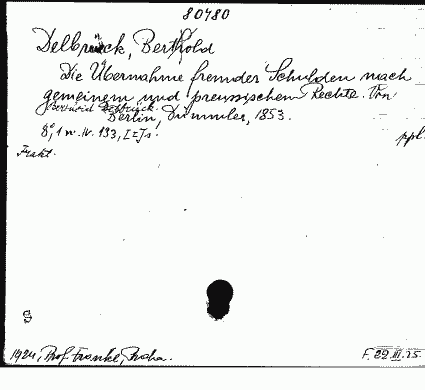 80780
Delbrück, Berthold
Die Übernahme fremder Schulden nach
gemeinem und preussischem Rechte. Von
Berthold Delbrück.
Berlin, Dümmler, 1853.
8°, 1 w. IV. 133, I = Js.
ppl.
Frakt.
S
1924, Prof. Frankl, Praha.
F. 22.III.25.